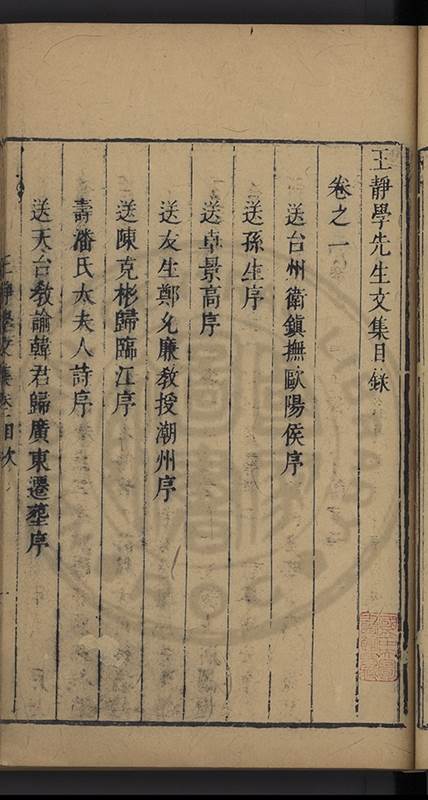 王靜學先生文集目錄
卷之一
送台州衛鎮撫歐陽侯序
送孫生序
送卓景高序
送友生鄭允廉教授潮州序
送陳克彬歸臨江序
壽潘氏太夫人詩序
送天台教諭韓君歸廣東遷塟序
王靜學文集卷一目次